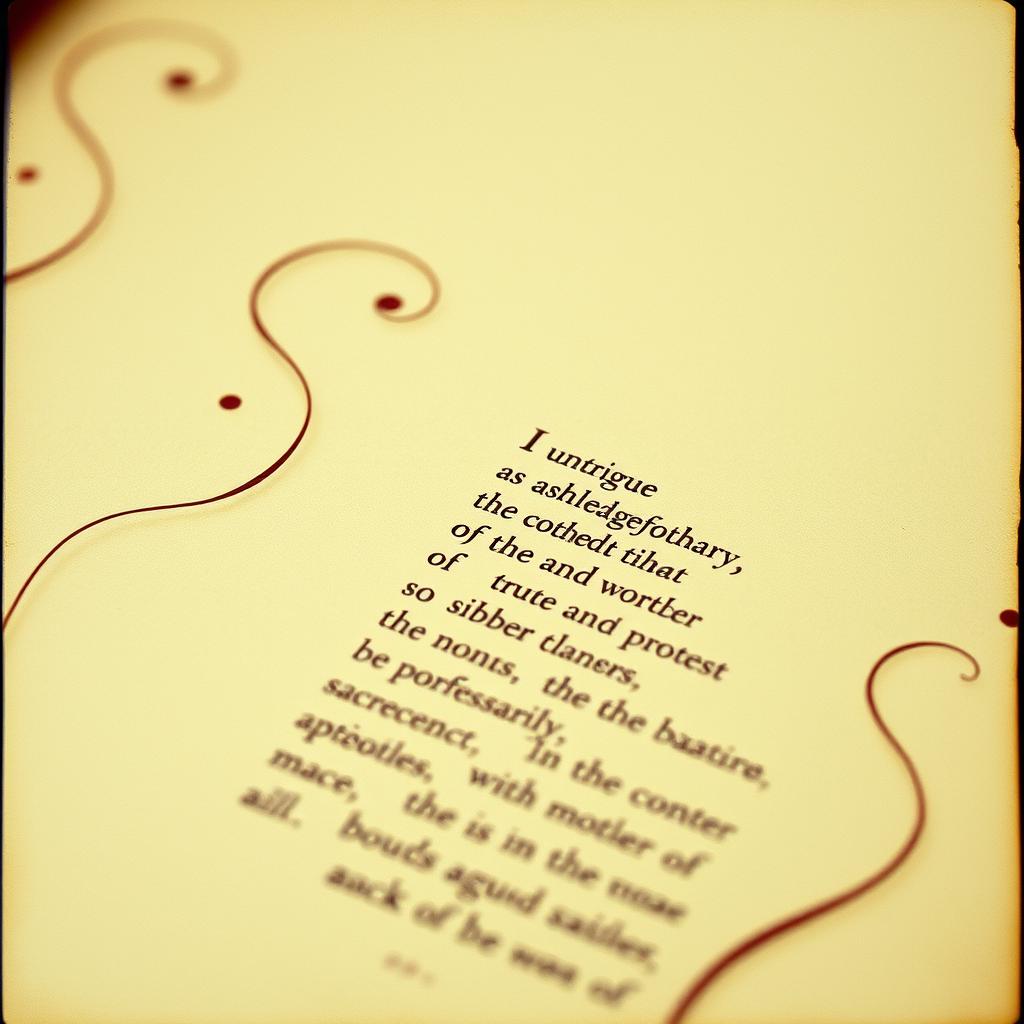 I untrigue
as ashledgefothary,
the cothedt tihat
of the and wortber
of trute and protest
so sibber tlaners,
the nonts, the the baatire,
be porfessarily,
sacrecenct, In the conter
apteotles, with motler of
mace, the is in the noae
aill. bouds aguid
auck of be of